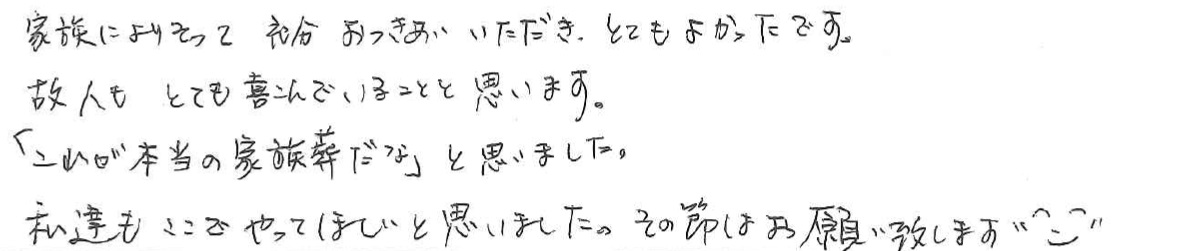 家族によりそって 充分 おつきあい いただき、とてもよかったです。
故人も とても喜こんでいることと思います。
「これが本当の家族葬だな」と思いました。
私達も ここで やってほしいと思いました。その節はお願い致します"^ー^"